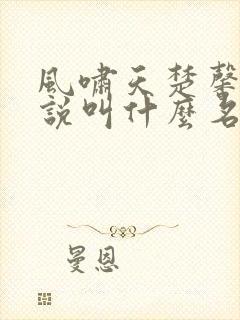 風嘯天楚馨
說叫什麼名
曼恩